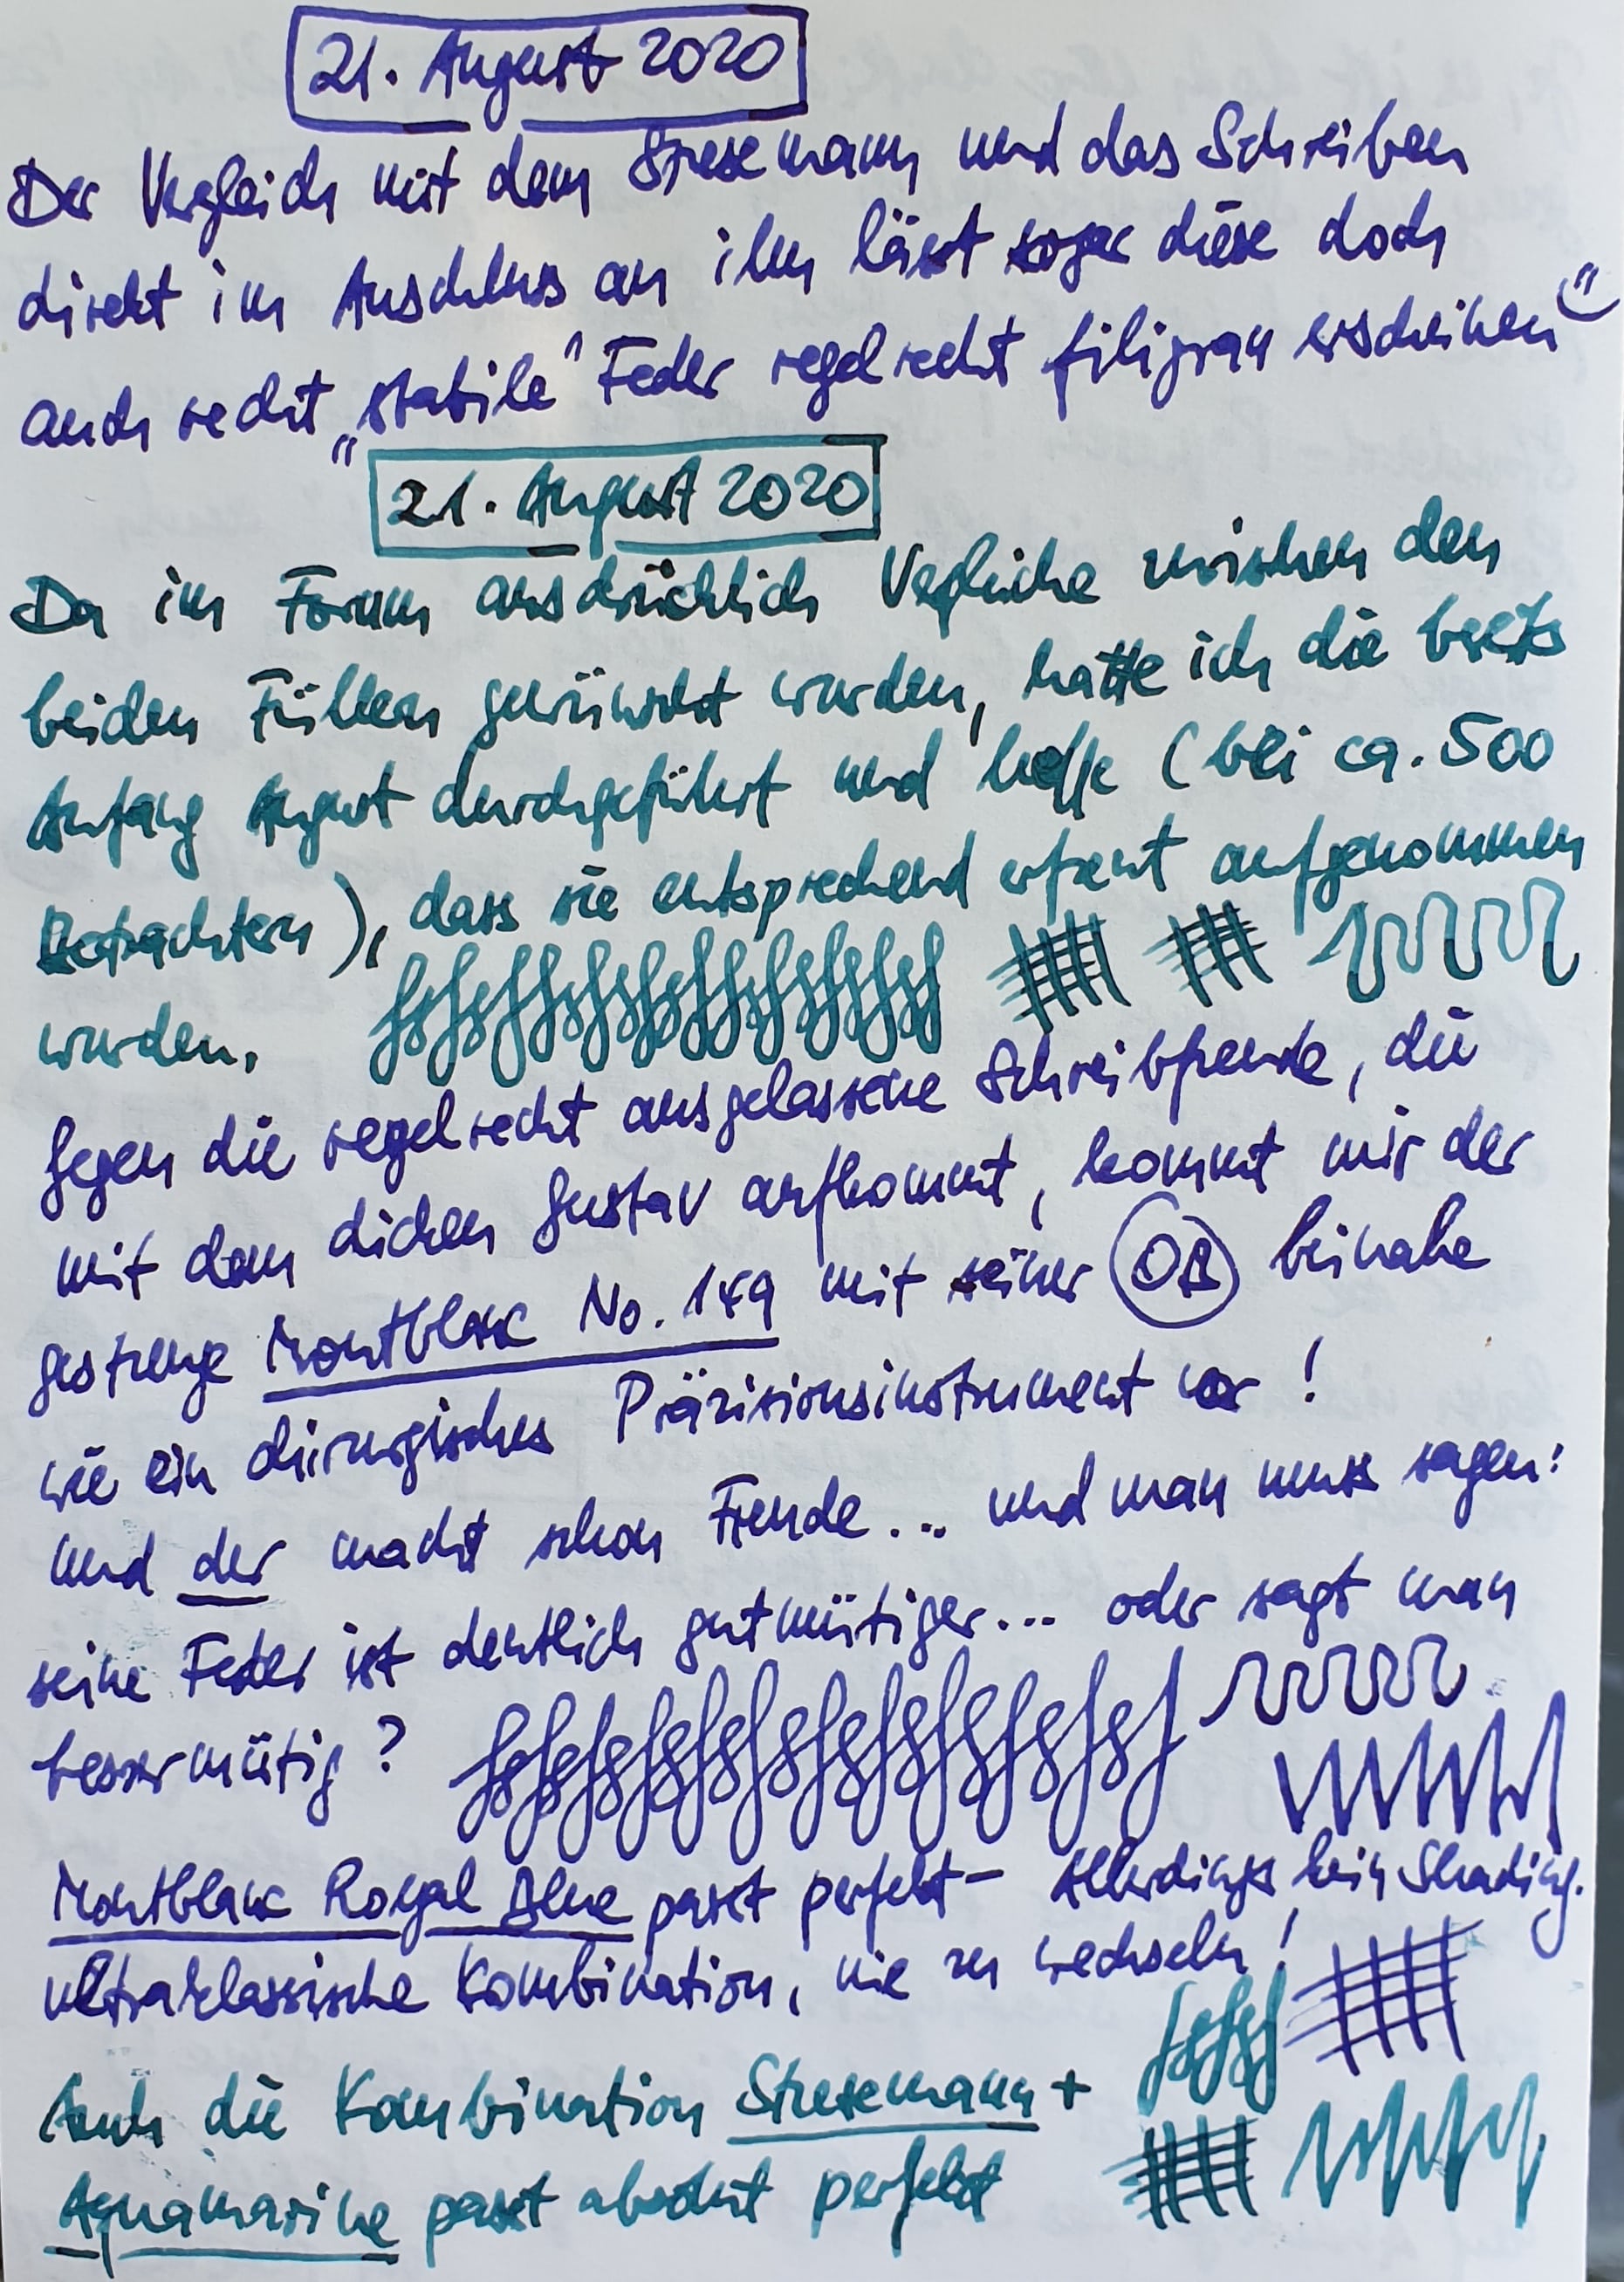 21. August 2020
Der Vergleich mit dem Stresemann und das Schreiben
direkt im Anschluss an ihn lässt sogar diese doch
auch recht „stabile“ Feder regelrecht filigran erscheinen
21. August 2020
Da im Forum ausdrücklich Vergleiche zwischen den
beiden Füllern gewünscht wurden, hatte ich die
Anfang August durchgeführt und hoffe (bei ca. 500
Betrachtern), dass sie entsprechend erfreut aufgenommen
wurden.
Gegen die regelrecht ausgelassene Schreibfreude, die
mit dem dicken Gustav aufkommt, kommt mir der
gestrenge Montblanc No. 149 mit seiner OB beinahe
wie ein chirurgisches Präzisionsinstrument vor!
Und der macht schon Freude... und man muss sagen:
seine Feder ist deutlich gutmütiger... oder sagt man
bessermütig?
Montblanc Royal Blue passt perfekt - Allerdings kein Shading.
ultraklassische Kombination, nie zu wechseln!
Auch die Kombination Stresemann +
Aquamarine passt absolut perfekt